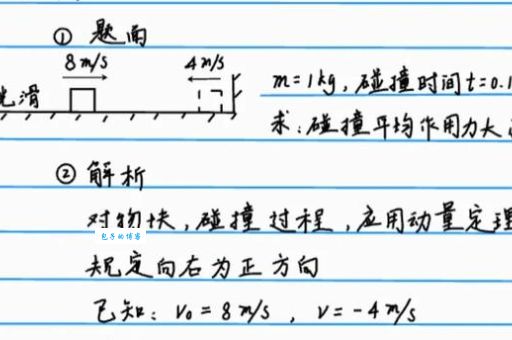 ① 题面
8m/s 4m/s
光滑 m=1kg, 碰撞时间t=0.1
求: 碰撞平均作用力大
② 解析
对物块, 碰撞过程, 应用动量定理
包子的博客
规定向右为正方向
已知: v₀ = 8m/s , v = -4m/s